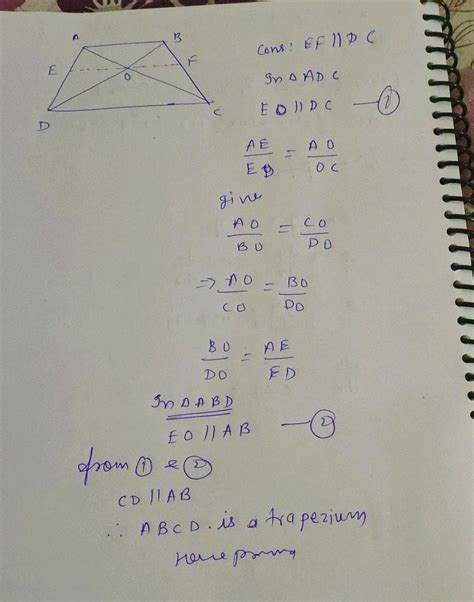 A B
E O F
D C
Cons: EF || DC
In Δ ADC
EO || DC — ①
AE/ED = AO/OC
give
AO/BO = CO/DO
⇒ AO/CO = BO/DO
BO/DO = AE/ED
In Δ ABD
EO || AB — ②
from ① & ②
CD || AB
∴ ABCD. is a trapezium